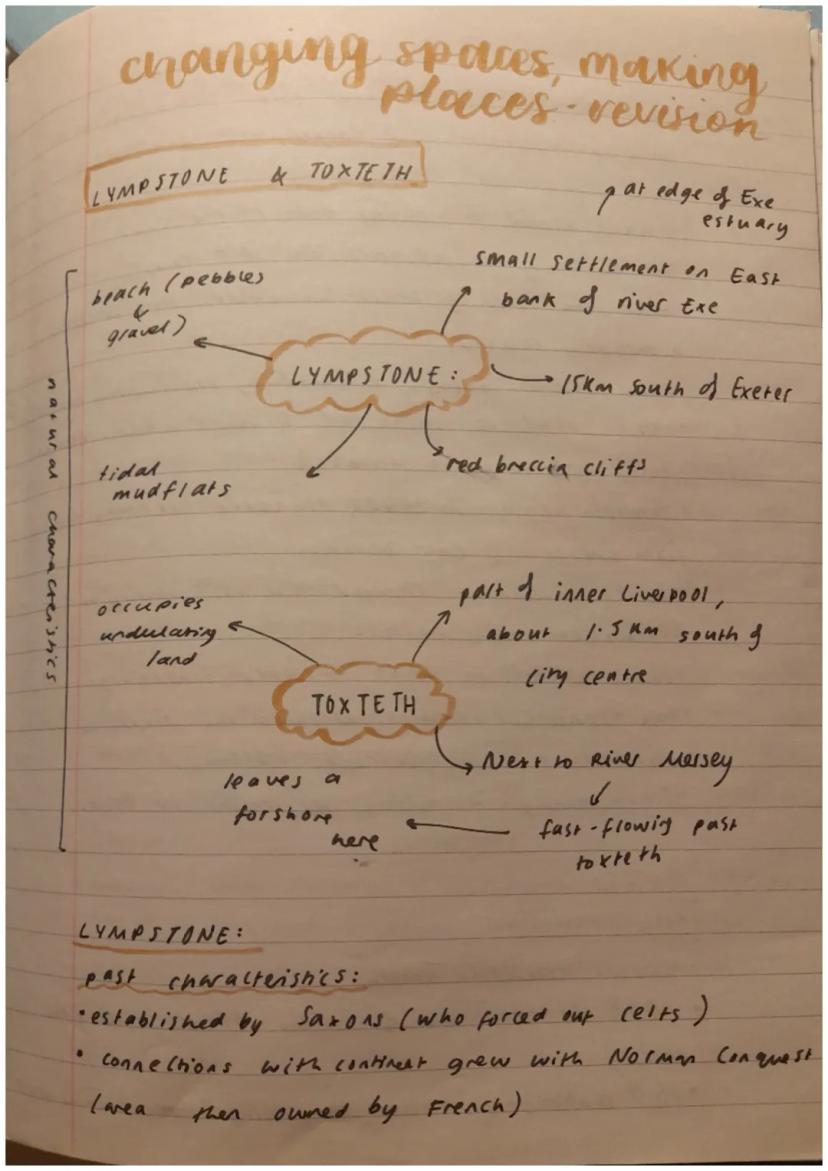 changing spaces, making
places - revision
LYMPSTONE & TOXTETH
at edge of Exe
estuary
small settlement on East
bank of river Exe
beach (pebbles
&
gravel)
LYMPSTONE:
15km south of Exeter
red breccia cliffs
tidal
mudflats
natural characteristics
occupies
undulating
land
part of inner Liverpool,
about 1.5km south of
city centre
TOXTETH
Next to River Mersey
fast-flowing past
toxteth
leaves a
forshore
here
LYMPSTONE:
past characteristics:
• established by Saxons (who forced out celts)
• connections with continent grew with Norman Conquest
(area then owned by French)